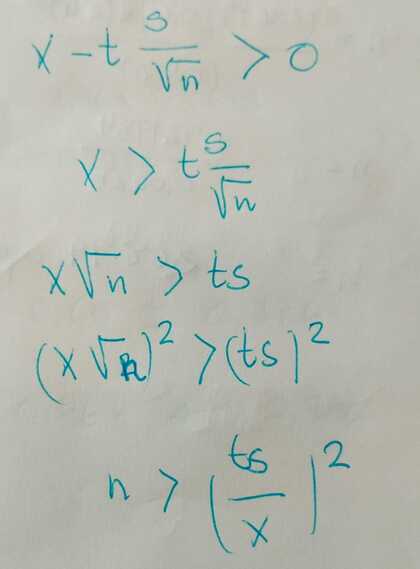 x - t s/√n > 0
x > t s/√n
x√n > ts
(x√n)² > (ts)²
n > (ts/x)²